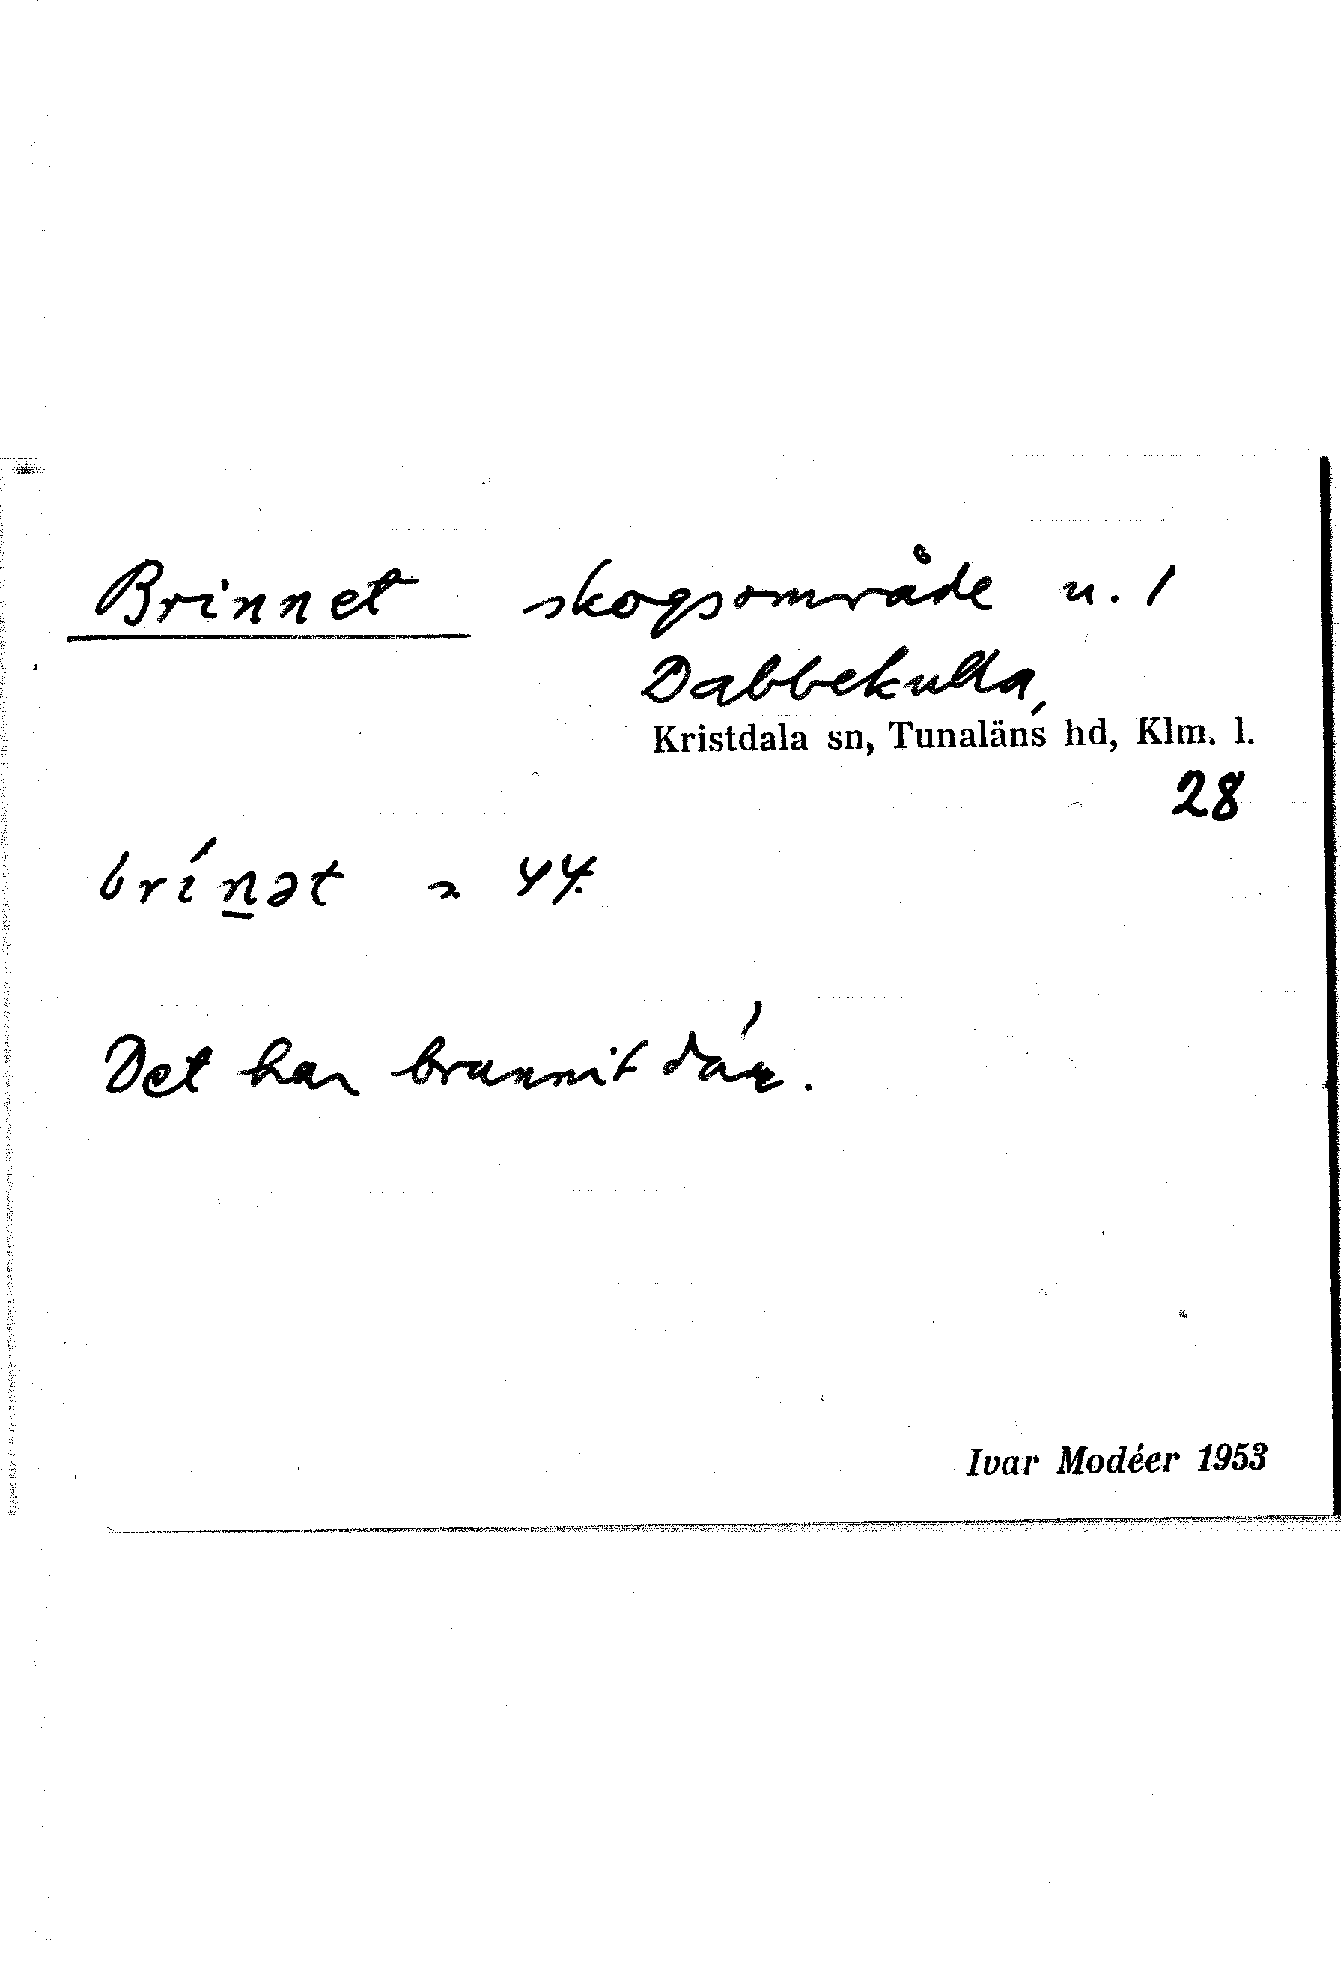 Brinnet skogsområde u. 1
Dabbekulla,
Kristdala sn, Tunaläns hd, Klm. l.
28
brín̲ət 44.
Det har brunnit där.
Ivar Modéer 1953